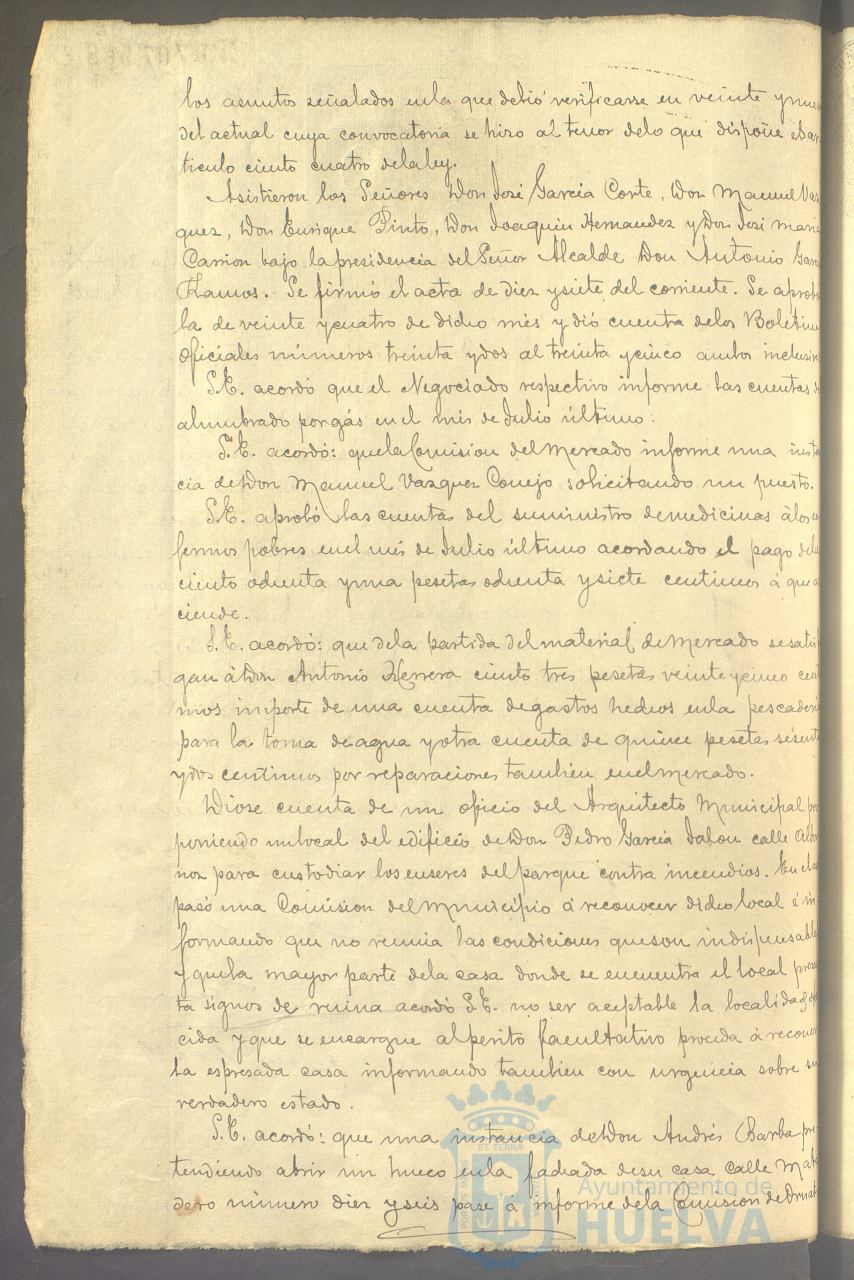 los asuntos señalados en la que debió verificarse en veinte y nue
del actual cuya convocatoria se hizo al tenor de lo que dispone el ar
ticulo ciento cuatro de la ley.
Asistieron los Señores Don José Garcia Corte, Don Manuel Vas
quez, Don Enrique Pinto, Don Joaquin Hernandez y Don José Maria
Carrion bajo la presidencia del Señor Alcalde Don Antonio Garc
Ramos. Se firmó el acta de diez y siete del corriente. Se aprob
la de veinte y cuatro de dicho mes y dió cuenta de los Boletin
oficiales números treinta y dos al treinta y cinco ambos inclusiv
S.E. acordó que el Negociado respectivo informe las cuentas d
alumbrado por gás en el mes de Julio último.
S.E. acordó: que la Comision del Mercado informe una insta
cia de Don Manuel Vazquez Conejo solicitando un puesto.
S.E. aprobó las cuentas del suministro de medicinas á los en
fermos pobres en el més de Julio último acordando el pago de la
ciento ochenta y una pesetas ochenta y siete centimos á que a
ciende.
S.E. acordó: que de la partida del material de Mercado se satis
gan á Don Antonio Herrera ciento tres pesetas veinte y cinco cent
mos importe de una cuenta de gastos hechos en la pescaderi
para la toma de agua y otra cuenta de quince pesetas sesent
y dos centimos por reparaciones tambien en el mercado.
Diose cuenta de un oficio del Arquitecto Municipal pro
poniendo un local del edificio de Don Pedro Garcia Jalon calle
nos para custodiar los enseres del parque contra incendios. En el
pasó una Comision del Municipio á reconocer dicho local é in
formando que no reunia las condiciones que son indispensable
y que la mayor parte de la casa donde se encuentra el local prese
ta signos de ruina acordó S.E. no ser aceptable la localidad
cida y que se encargue al perito facultativo proceda á reconer
la espresada casa informando tambien con urgencia sobre su
verdadero estado.
S.E. acordó: que una instancia de Don Andrés Barba pre
tendiendo abrir un hueco en la fachada de su casa calle Mata
dero número diez y seis pase á informe de la Comision de Ornat
Ayuntamiento de
HUELVA